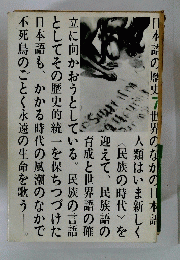 日本語の歴史7世界のなかの日本語
人類はいま新しく
〈民族の時代〉を
迎えて、民族語の
育成と世界語の確
立に向かおうとしている。民族の言語
としてその歴史的統一を保ちつづけた
日本語も、かかる時代の風潮のなかで
不死鳥のごとく永遠の生命を歌う――。